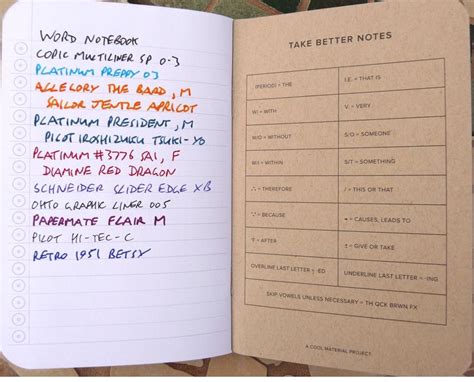 WORD NOTEBOOK
COPIC MULTILINER SP 0-3
PLATINUM PREPPY 03
ALLEGORY THE BARD, M
SAILOR JENTLE APRICOT
PLATINUM PRESIDENT, M
PILOT IROSHIZUKU TSUKI-YO
PLATINUM #3776 SAI, F
DIAMINE RED DRAGON
SCHNEIDER SLIDER EDGE XB
OHTO GRAPHIC LINER 005
PAPERMATE FLAIR M
PILOT HI-TEC-C
RETRO 1951 BETSY
TAKE BETTER NOTES
. (PERIOD) = THE
I.E. = THAT IS
W/ = WITH
V. = VERY
W/O = WITHOUT
S/O = SOMEONE
W/I = WITHIN
S/T = SOMETHING
∴ = THEREFORE
/ = THIS OR THAT
∵ = BECAUSE
= CAUSES, LEADS TO
= AFTER
± = GIVE OR TAKE
OVERLINE LAST LETTER = -ED
UNDERLINE LAST LETTER = -ING
SKIP VOWELS UNLESS NECESSARY = TH QCK BRWN FX
A COOL MATERIAL PROJECT